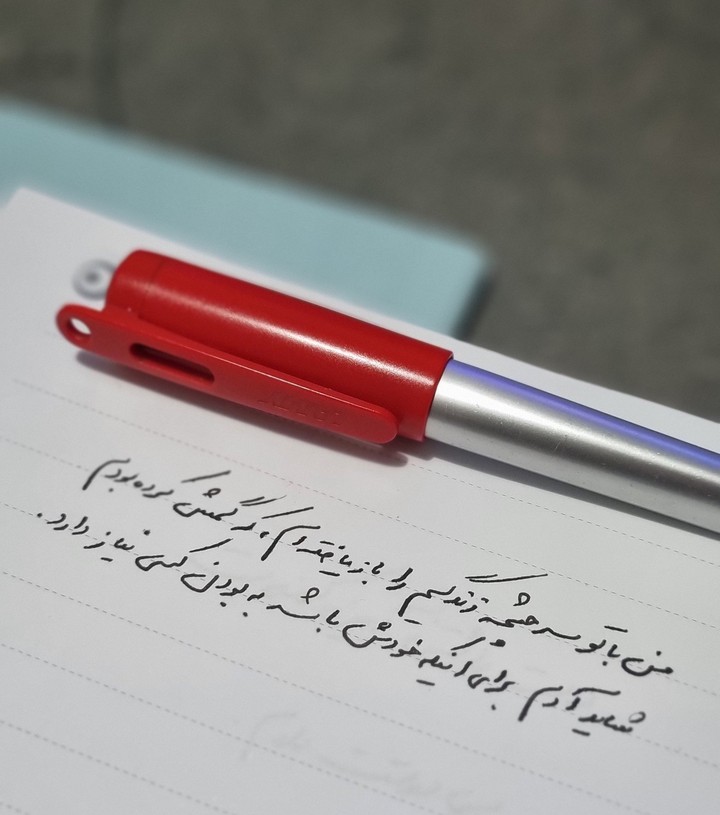 من با تو سرچشمه زندگیم را بازیافته‌ام، که گمش کرده بودم
شاید آدم برای آنکه خودش باشد به بودن کسی نیاز دارد.